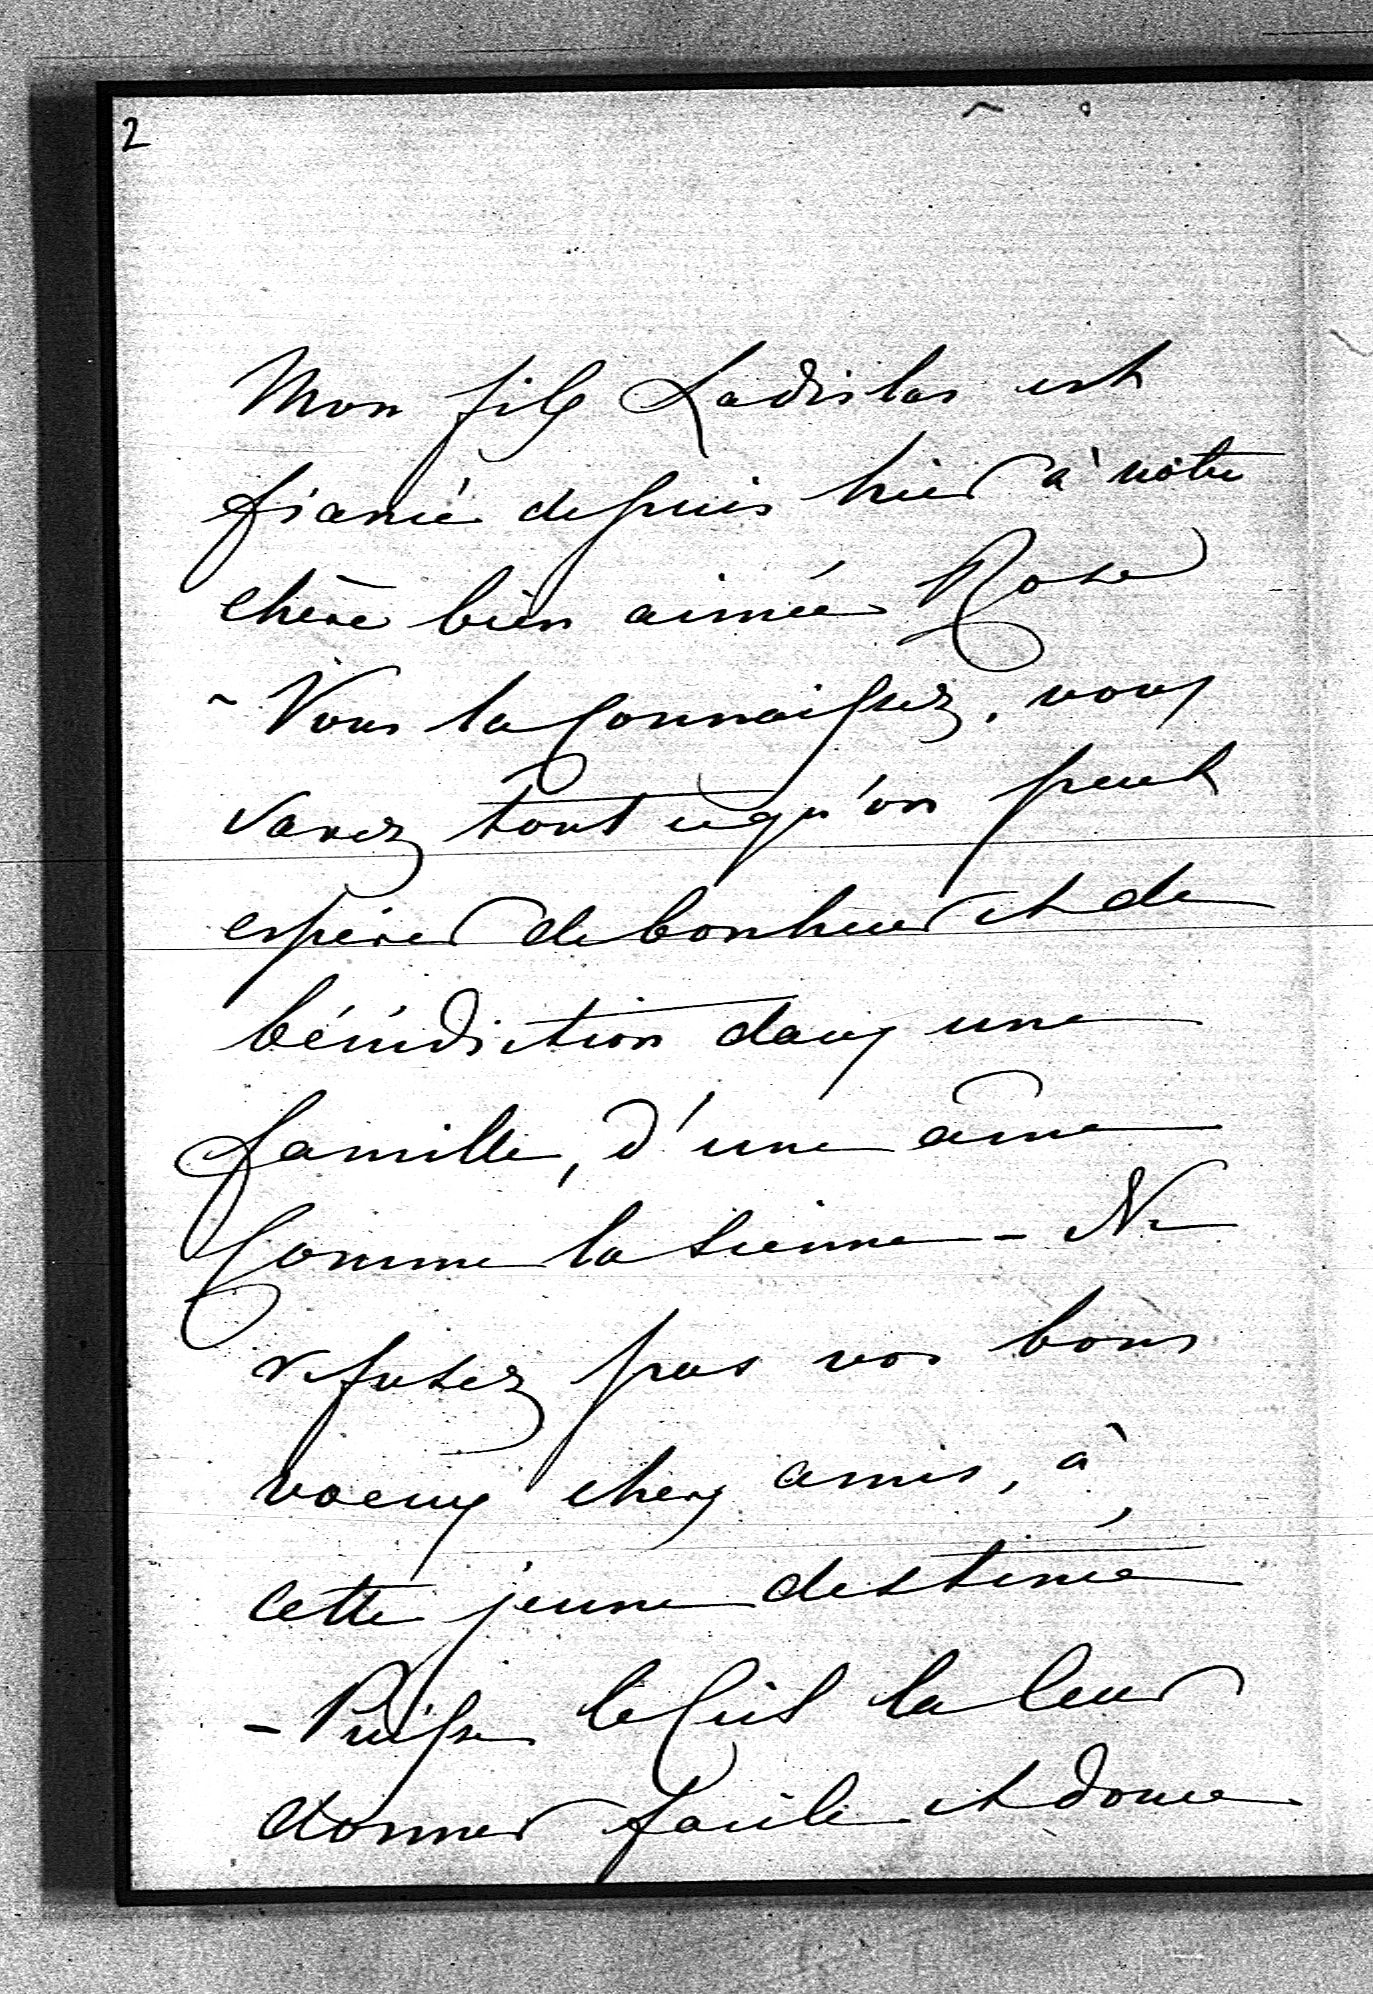 2
Mon fils Ladislas est
fiancé depuis hier à nôtre
chère bien aimée Rose
- Vous la connaissez, vous
savez tout ce qu'on peut
espérer de bonheur et de
bénédiction dans une
famille, d'une âme
comme la sienne - Ne
refusez pas vos bons
voeux chers amis, à
cette jeune destinée
- Puisse le Ciel la leur
donner facile et douce